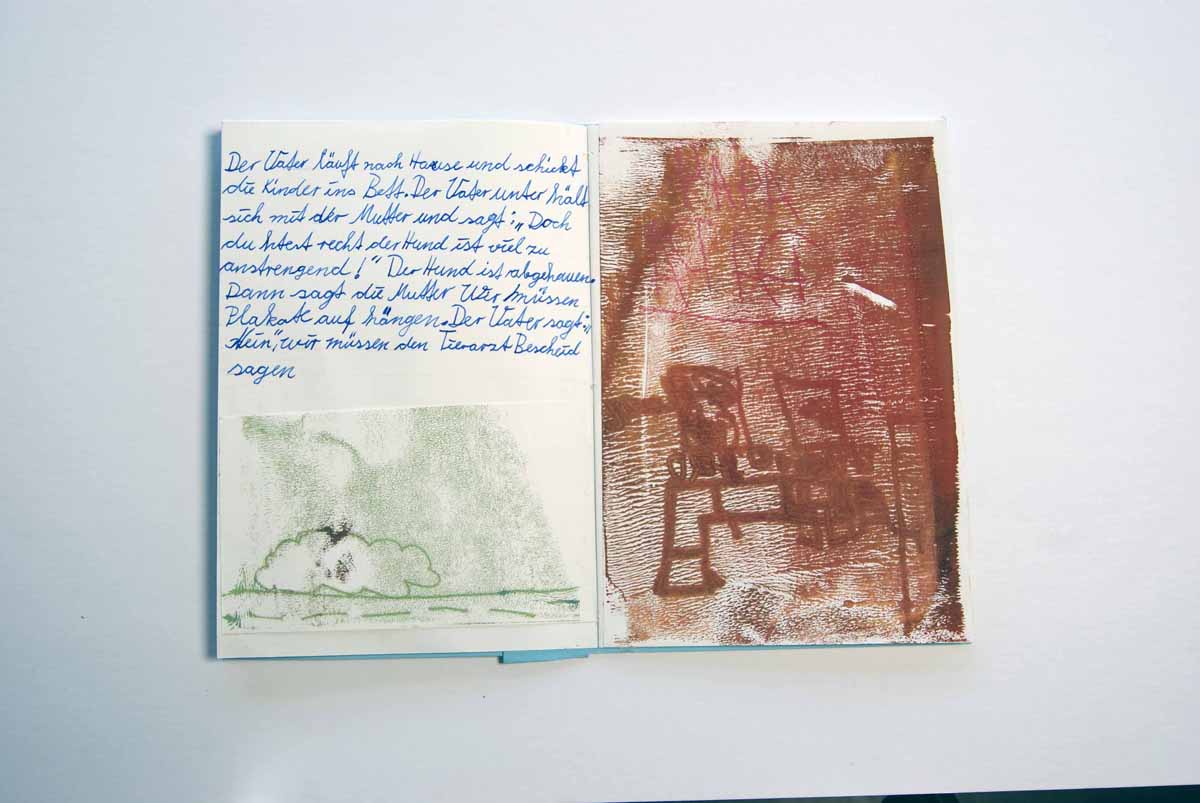 Der Vater läuft nach Hause und schickt
die Kinder ins Bett. Der Vater unter hält
sich mit der Mutter und sagt:„Doch
du htest recht der Hund ist viel zu
anstrengend!“ Der Hund ist abgehauen.
Dann sagt die Mutter Wir müssen
Plakate auf hängen. Der Vater sagt:„
Nein“, wir müssen den Tierarzt Bescheid
sagen